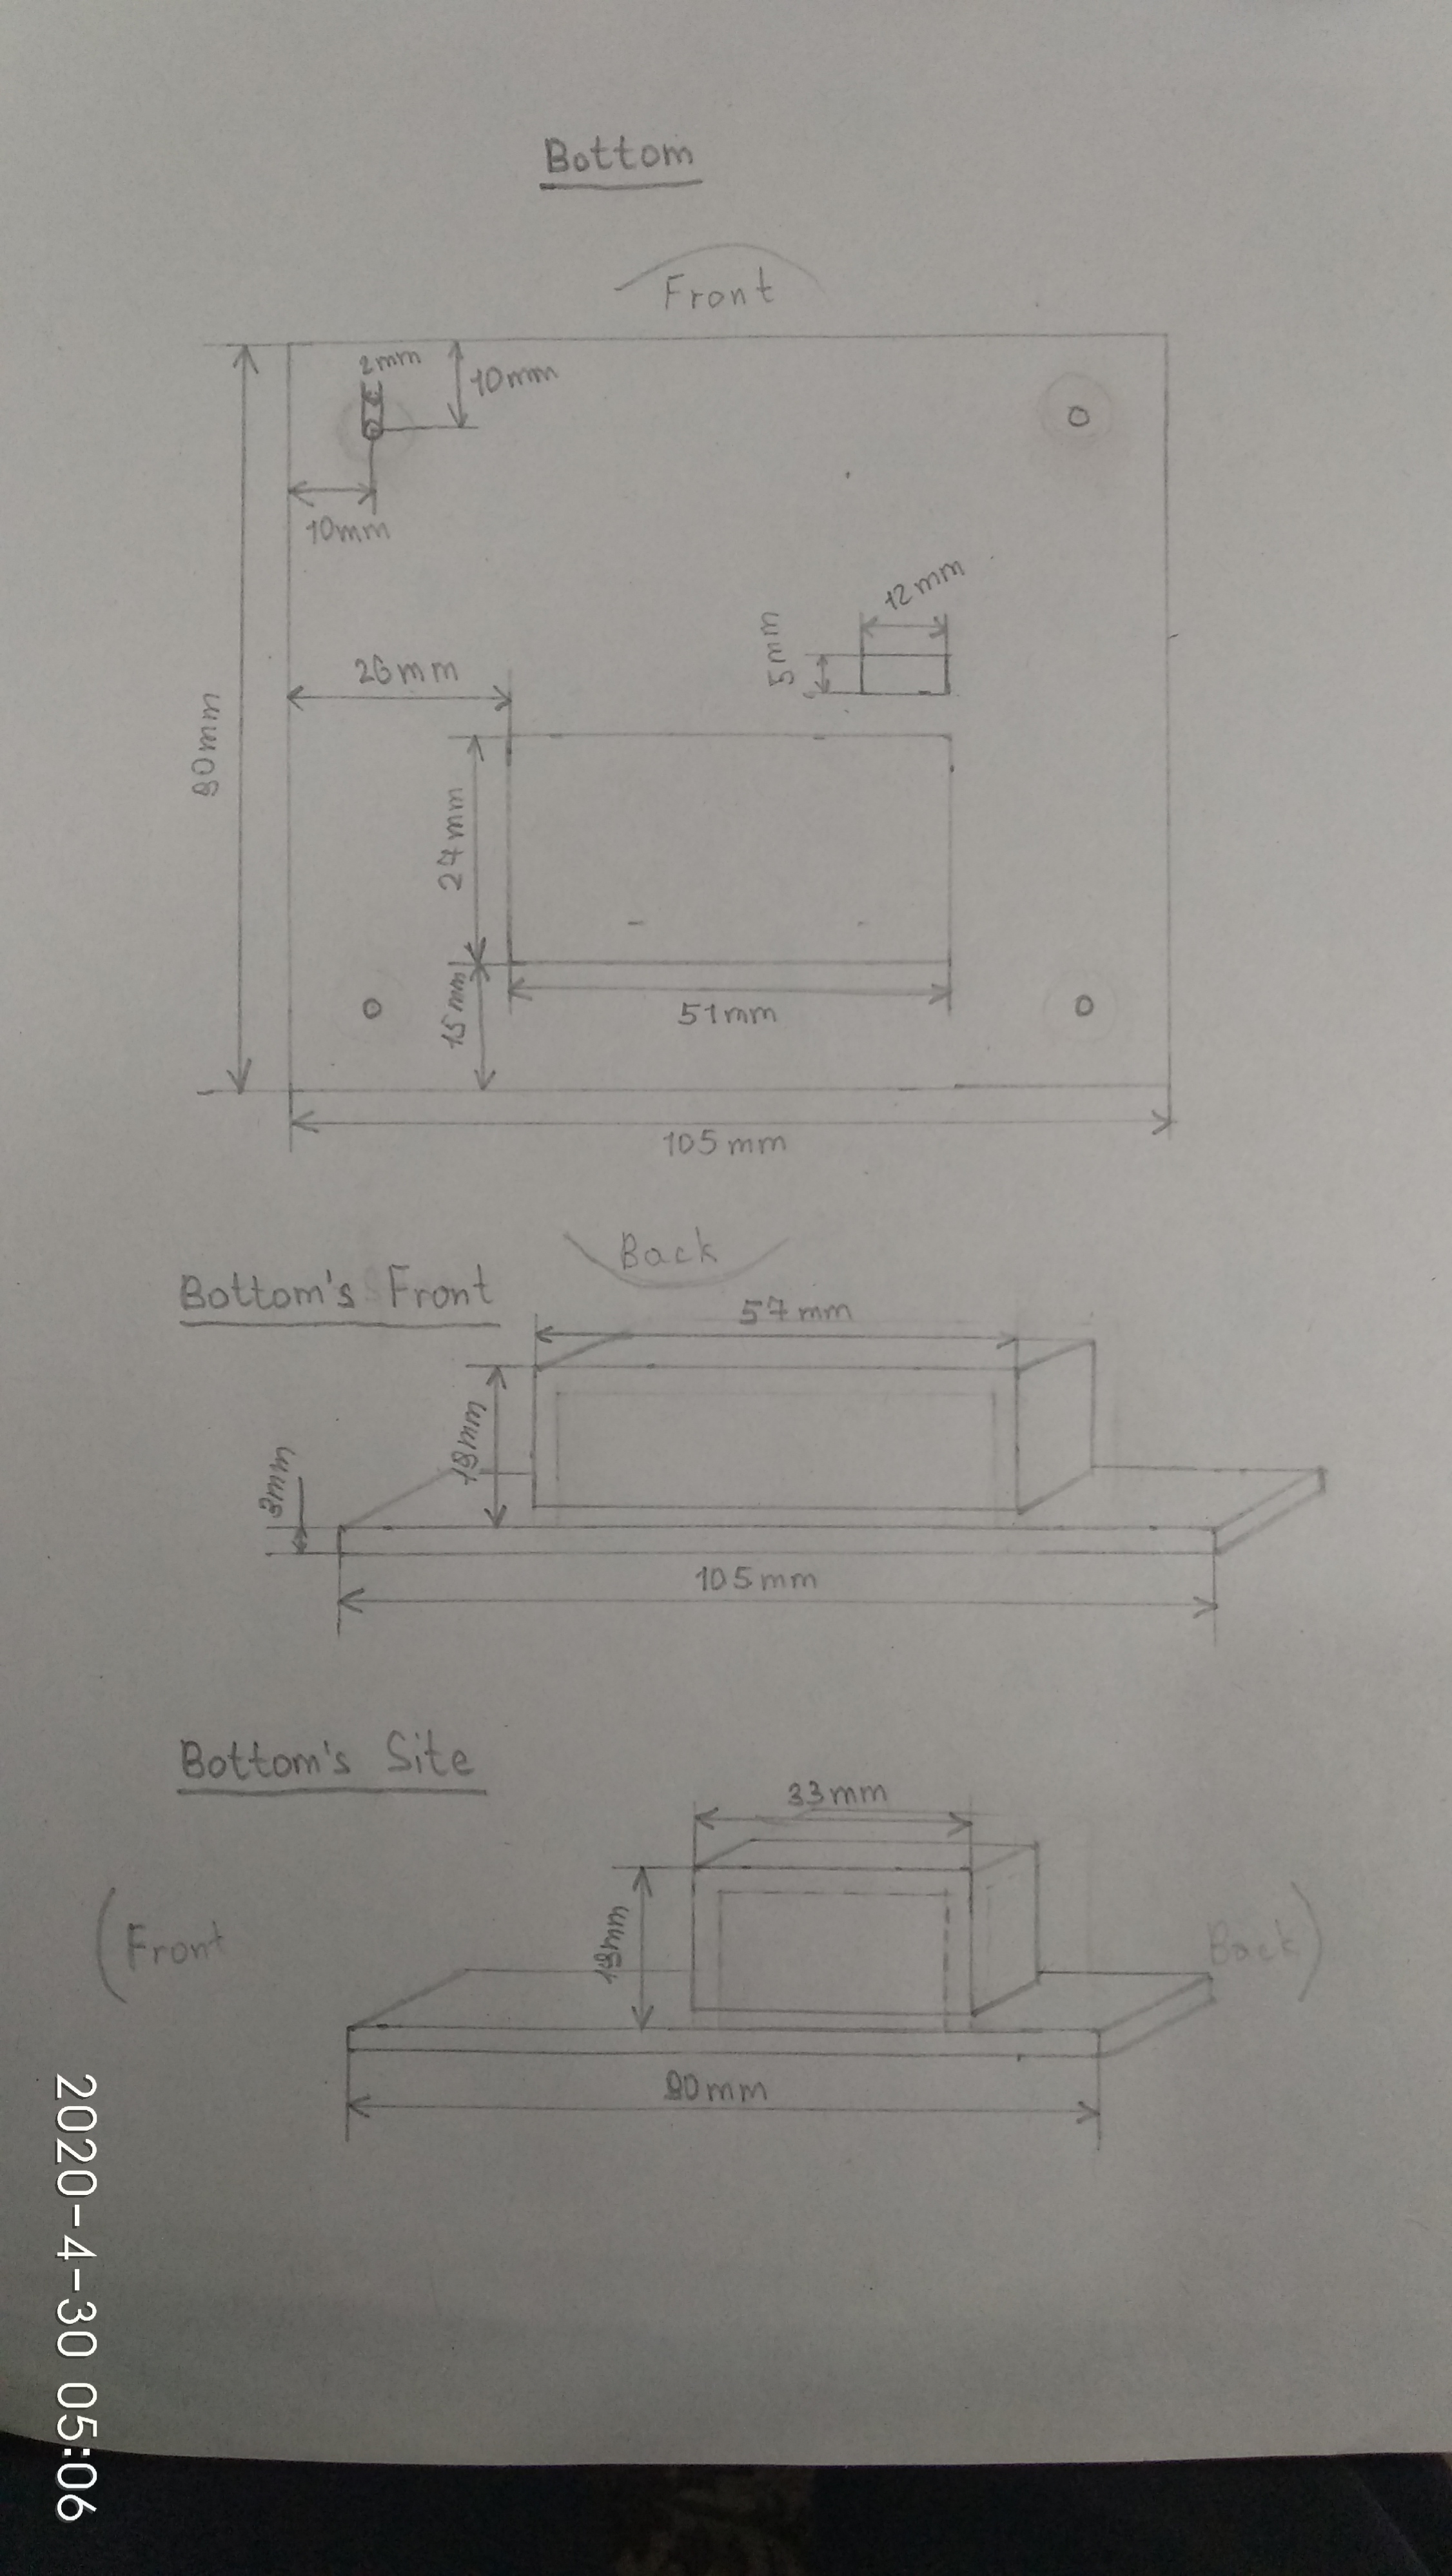 Bottom
Front
2mm
10mm
10mm
12mm
5mm
26mm
90mm
27mm
15mm
51mm
105mm
Back
Bottom's Front
57mm
19mm
3mm
105mm
Bottom's Site
33mm
19mm
(Front
Back)
90mm
2020-4-30 05:06